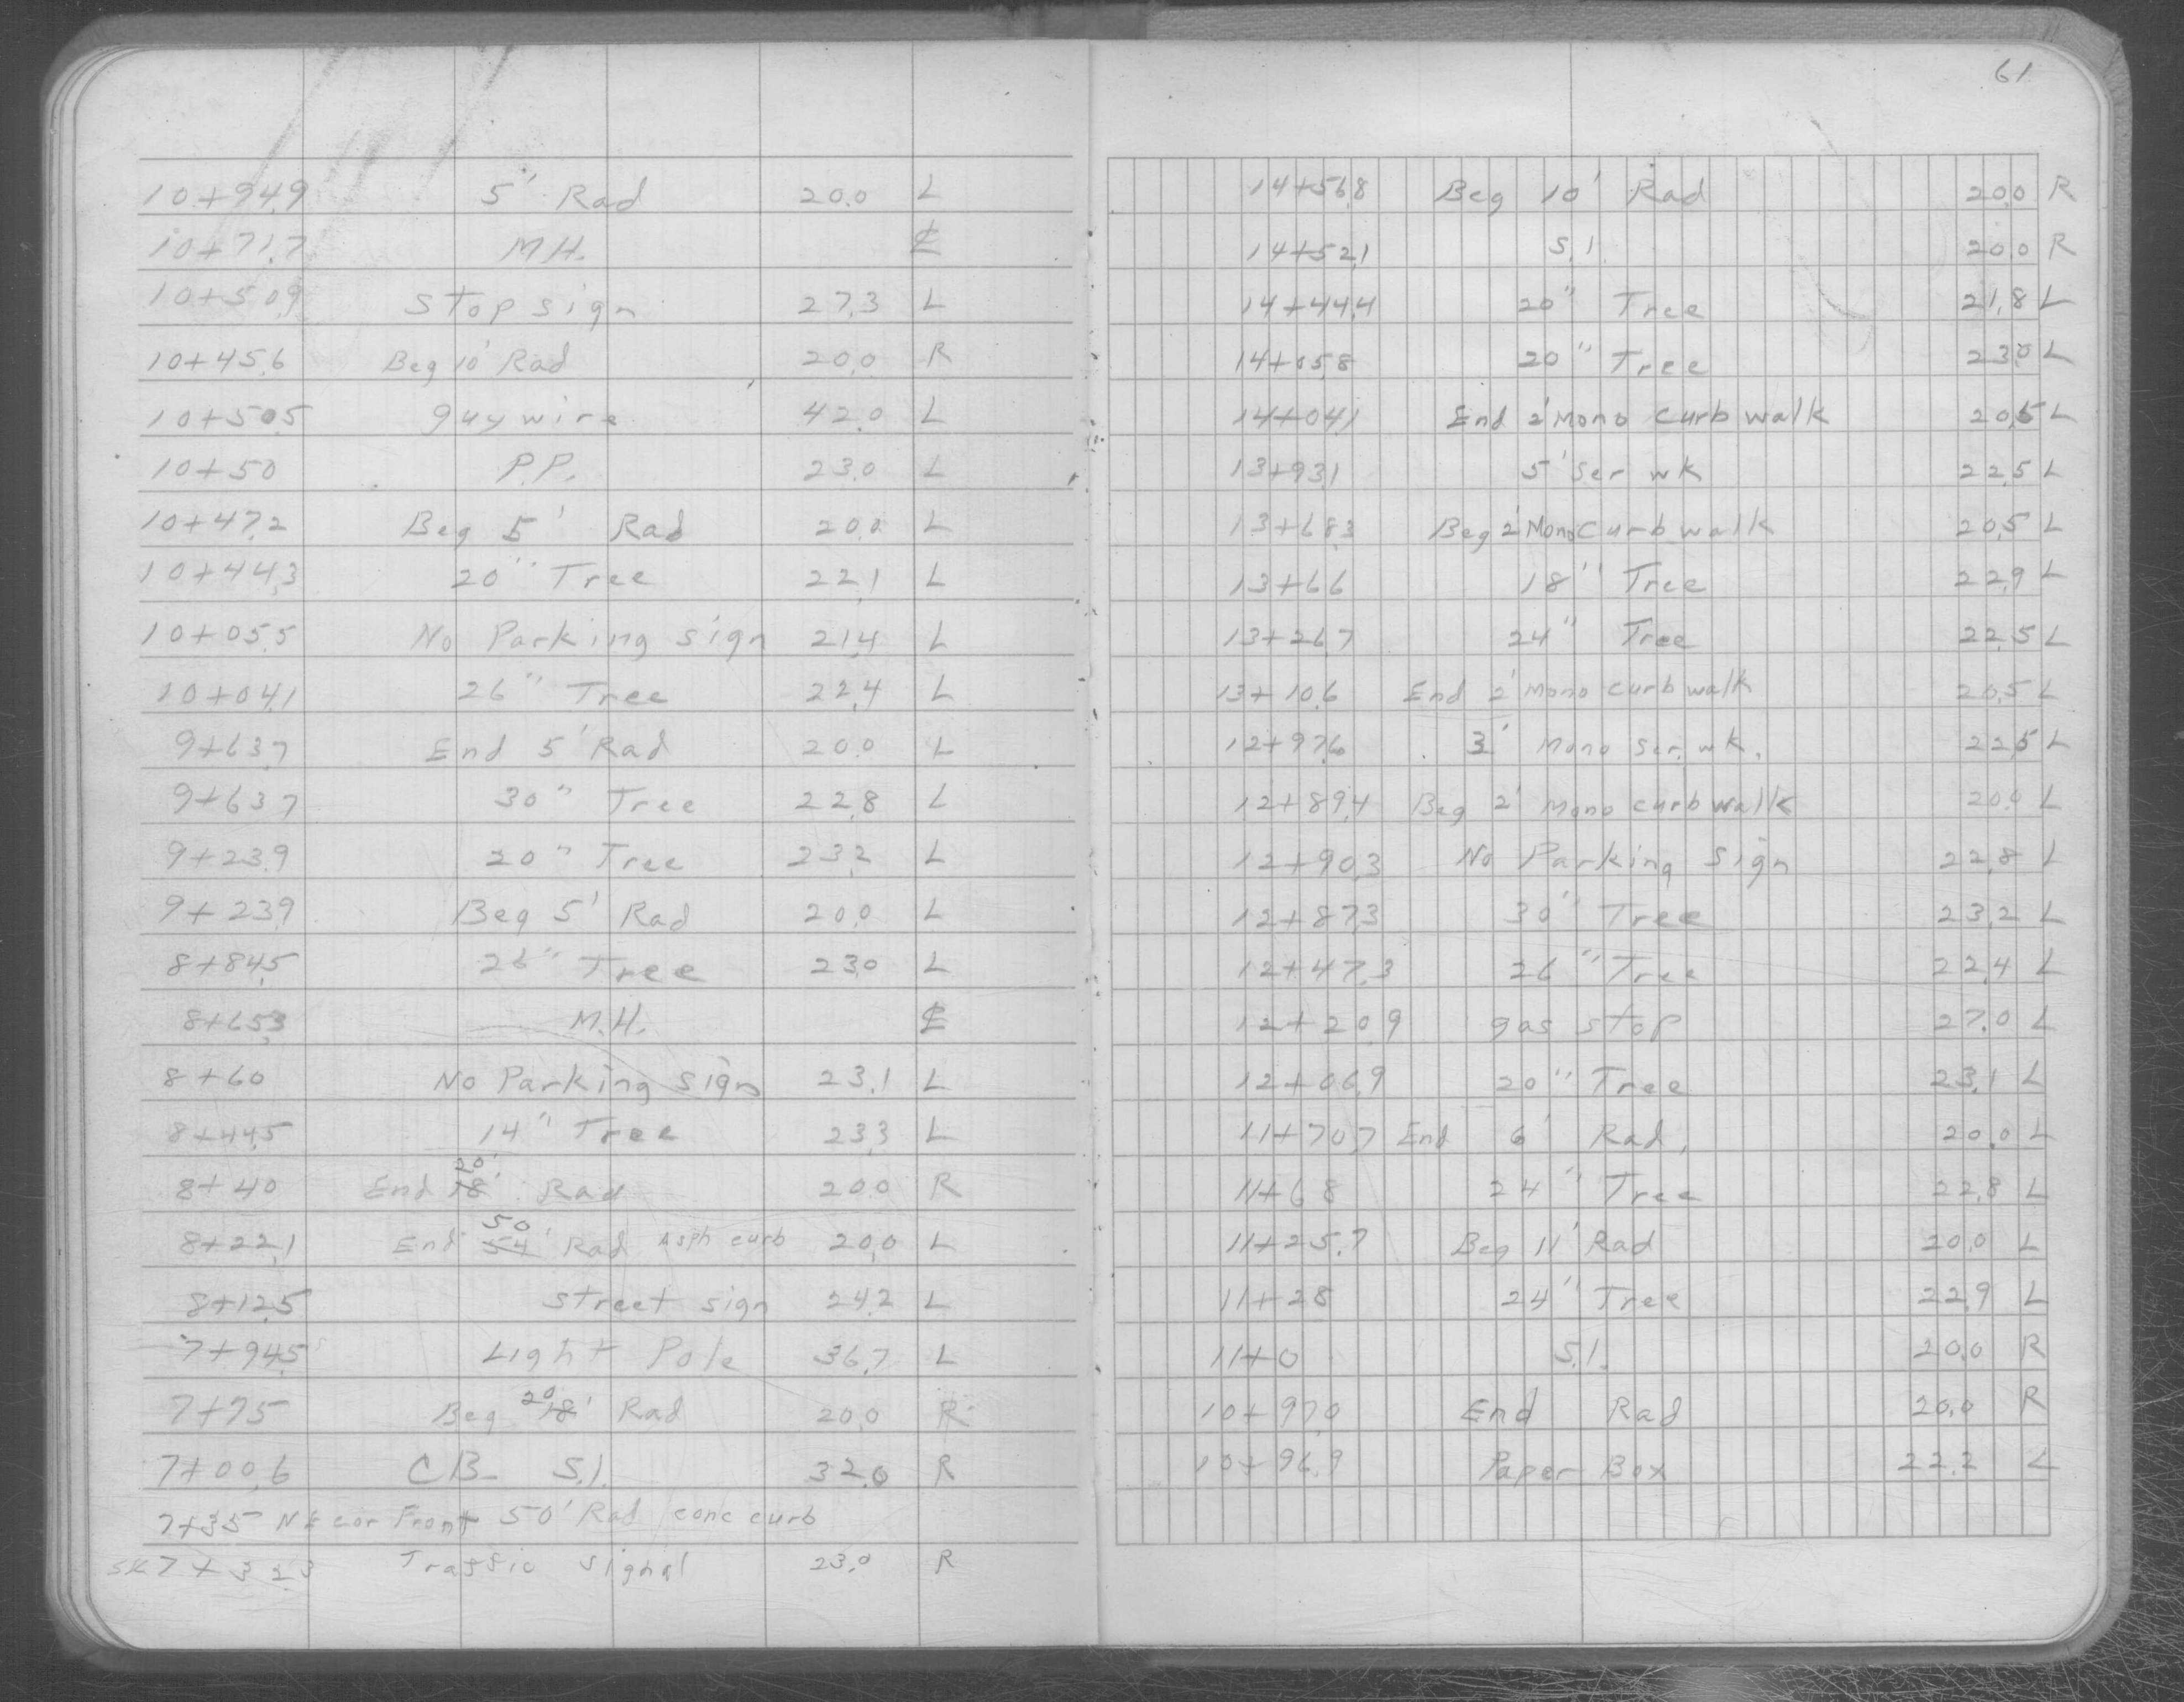 10+94.9 5' Rad 20.0 L
10+71.7 M.H. ℄
10+50.9 Stop sign 27.3 L
10+45.6 Beg 10' Rad 20.0 R
10+50.5 guy wire 42.0 L
10+50 P.P. 23.0 L
10+47.2 Beg 5' Rad 20.0 L
10+44.3 20" Tree 22.1 L
10+05.5 No Parking sign 21.4 L
10+04.1 26" Tree 22.4 L
9+63.7 End 5' Rad 20.0 L
9+63.7 30" Tree 22.8 L
9+23.9 20" Tree 23.2 L
9+23.9 Beg 5' Rad 20.0 L
8+84.5 26" Tree 23.0 L
8+65.3 M.H. ℄
8+60 No Parking sign 23.1 L
8+44.5 14" Tree 23.3 L
8+40 End 18' 20' Rad 20.0 R
8+22.1 End 54' 50 Rad Asph curb 20.0 L
8+12.5 street sign 24.2 L
7+94.5 Light Pole 36.7 L
7+75 Beg 20 18' Rad 20.0 R
7+00.6 CB- S.I. 32.0 R
7+35 NE cor Front 50' Rad conc curb
7+32.3 Traffic signal 23.0 R
61
14+56.8 Beg 10' Rad 20.0 R
14+52.1 S.I. 20.0 R
14+44.4 20" Tree 21.8 L
14+05.8 20" Tree 23.0 L
14+04.1 End 2' Mono curb walk 20.5 L
13+93.1 5' Ser wk 22.5 L
13+68.3 Beg 2' Mono curb walk 20.5 L
13+66 18" Tree 22.9 L
13+26.7 24" Tree 22.5 L
13+10.6 End 2' Mono curb walk 20.5 L
12+97.6 3' Mono Ser. wk. 22.5 L
12+89.4 Beg 2' Mono curb walk 20.0 L
12+90.3 No Parking Sign 22.8 L
12+87.3 30" Tree 23.2 L
12+47.3 26" Tree 22.4 L
12+20.9 gas stop 27.0 L
12+06.9 20" Tree 23.1 L
11+70.7 End 6' Rad. 20.0 L
11+68 24" Tree 22.8 L
11+25.7 Beg 11' Rad 20.0 L
11+28 24" Tree 22.9 L
11+0 S.I. 20.0 R
10+97.0 End Rad 20.0 R
10+96.9 Paper Box 22.2 L